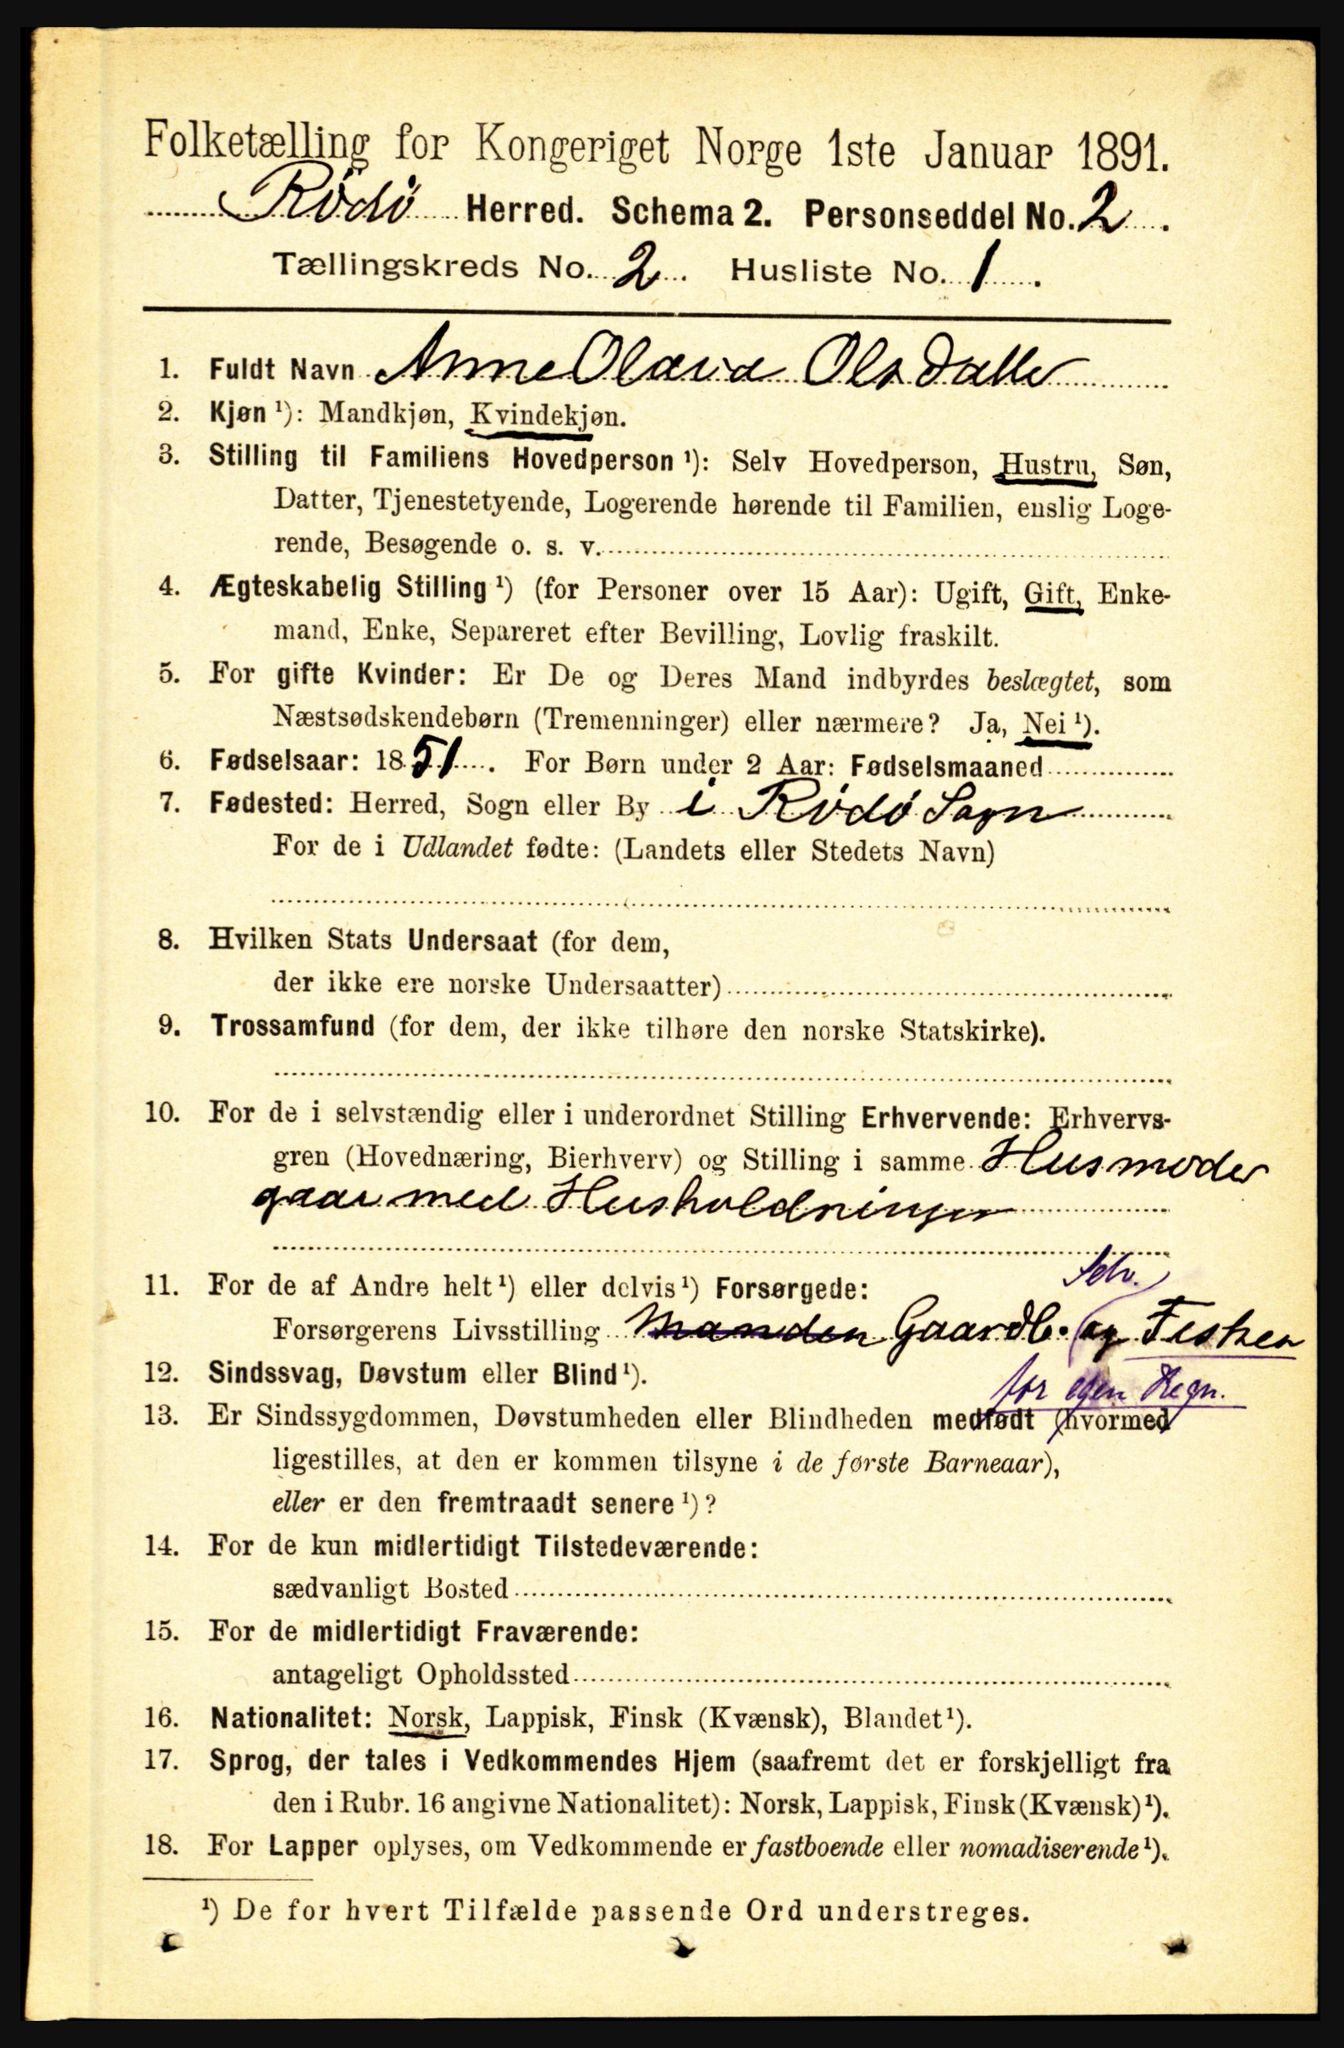 Folketælling for Kongeriget Norge 1ste Januar 1891.
Rödö Herred. Schema 2. Personseddel No. 2.
Tællingskreds No. 2. Husliste No. 1.
1. Fuldt Navn Anne Olava Olsdatter
2. Kjøn ¹): Mandkjøn, Kvindekjøn.
3. Stilling til Familiens Hovedperson ¹): Selv Hovedperson, Hustru, Søn,
Datter, Tjenestetyende, Logerende hørende til Familien, enslig Loge-
rende, Besøgende o. s. v.
4. Ægteskabelig Stilling ¹) (for Personer over 15 Aar): Ugift, Gift, Enke-
mand, Enke, Separeret efter Bevilling, Lovlig fraskilt.
5. For gifte Kvinder: Er De og Deres Mand indbyrdes beslægtet, som
Næstsødskendebørn (Tremenninger) eller nærmere? Ja, Nei ¹).
6. Fødselsaar: 1851. For Børn under 2 Aar: Fødselsmaaned
7. Fødested: Herred, Sogn eller By i Rödö Sogn
For de i Udlandet fødte: (Landets eller Stedets Navn)
8. Hvilken Stats Undersaat (for dem,
der ikke ere norske Undersaatter)
9. Trossamfund (for dem, der ikke tilhøre den norske Statskirke).
10. For de i selvstændig eller i underordnet Stilling Erhvervende: Erhvervs-
gren (Hovednæring, Bierhverv) og Stilling i samme Husmoder
gaar med Husholdninger
11. For de af Andre helt ¹) eller delvis ¹) Forsørgede: Selv.
Forsørgerens Livsstilling Manden Gaardb. og Fisker
for egen Regn.
12. Sindssvag, Døvstum eller Blind ¹).
13. Er Sindssygdommen, Døvstumheden eller Blindheden medfødt (hvormed
ligestilles, at den er kommen tilsyne i de første Barneaar),
eller er den fremtraadt senere ¹)?
14. For de kun midlertidigt Tilstedeværende:
sædvanligt Bosted
15. For de midlertidigt Fraværende:
antageligt Opholdssted
16. Nationalitet: Norsk, Lappisk, Finsk (Kvænsk), Blandet ¹).
17. Sprog, der tales i Vedkommendes Hjem (saafremt det er forskjelligt fra
den i Rubr. 16 angivne Nationalitet): Norsk, Lappisk, Finsk (Kvænsk) ¹).
18. For Lapper oplyses, om Vedkommende er fastboende eller nomadiserende ¹).
¹) De for hvert Tilfælde passende Ord understreges.